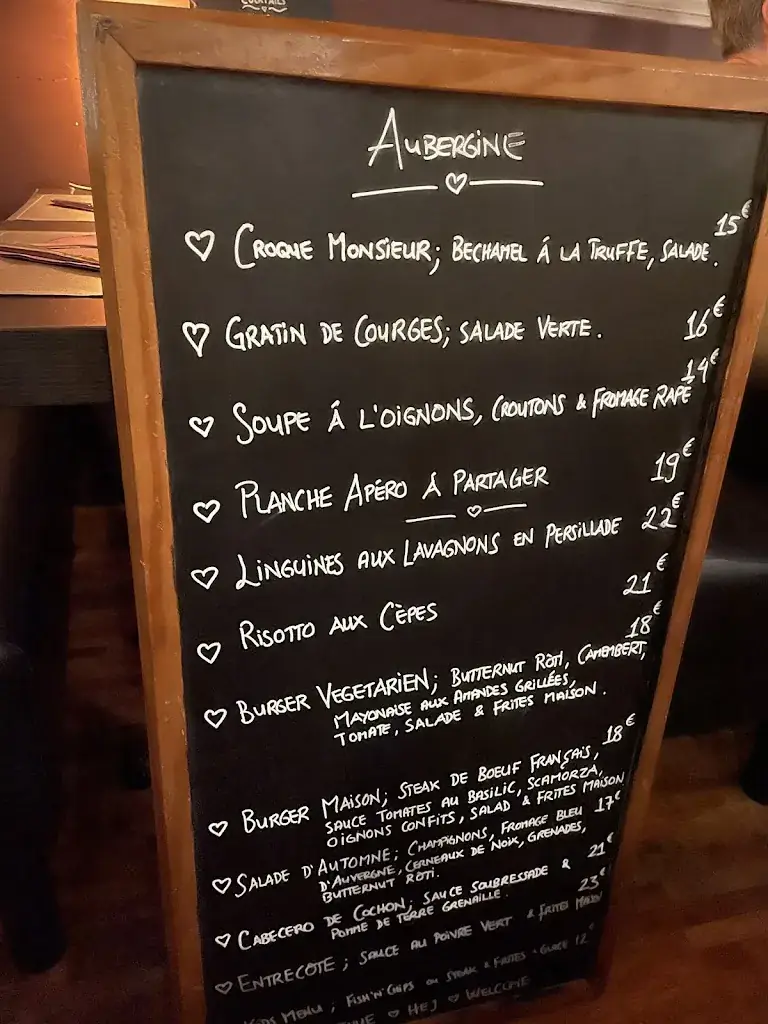 COCKTAILS
AUBERGINE
15€
CROQUE MONSIEUR; BECHAMEL Á LA TRUFFE, SALADE.
GRATIN DE COURGES; SALADE VERTE. 16€
14€
SOUPE Á L'OIGNONS, CROUTONS & FROMAGE RAPÉ
PLANCHE APÉRO Á PARTAGER 19€
LINGUINES AUX LAVAGNONS EN PERSILLADE 22€
RISOTTO AUX CÈPES 21€
18€
BURGER VEGETARIEN; BUTTERNUT RÔTI, CAMEMBERT,
MAYONAISE AUX AMANDES GRILLÉES,
TOMATE, SALADE & FRITES MAISON.
18€
BURGER MAISON; STEAK DE BOEUF FRANÇAIS,
SAUCE TOMATES AU BASILIC, SCAMORZA,
OIGNONS CONFITS, SALAD & FRITES MAISON
17€
SALADE D'AUTOMNE; CHAMPIGNONS, FROMAGE BLEU
D'AUVERGNE, CERNEAUX DE NOIX, GRENADES,
BUTTERNUT RÔTI.
21€
CABECERO DE COCHON; SAUCE SOUBRESSADE &
POMME DE TERRE GRENAILLE.
23€
ENTRECÔTE; SAUCE AU POIVRE VERT & FRITES MAISON
KIDS MENU; FISH'N'CHIPS OU STEAK & FRITES + GLACE 12€
HEJ WELCOME